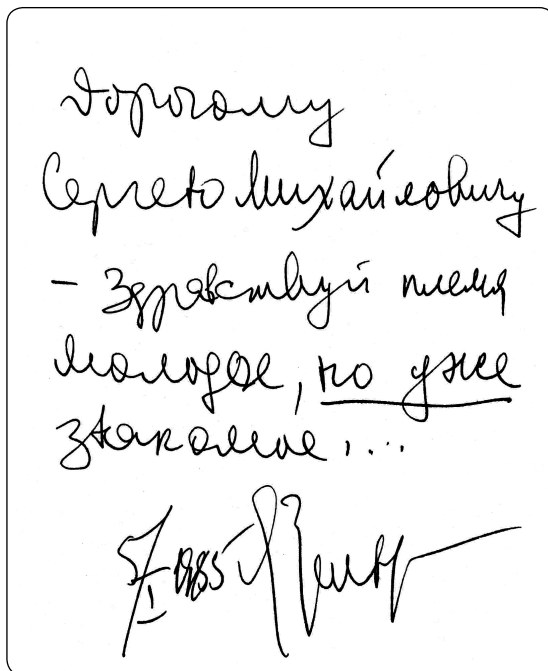 Дорогому
Сергею Михайловичу
- Здравствуй племя
молодое, но уже
знакомое,...
5/I 1985